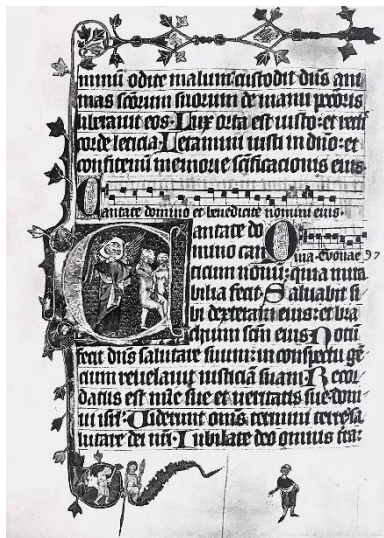 minū odite malum custodit dn̄s ani
mas sc̄orum suorum de manu pc̄oris
liberauit eos. Lux orta est iusto: et recti
corde leticia. Letamini iusti in dn̄o: et
confitemini memorie sc̄ificacionis eius
Cantate domino et benedicite nomini eius.
Cantate do
mino can Quia. evovae 97
ticum nouū: quia mira
bilia fecit. Saluabit si
bi dextera eius: et bra
chium sc̄m eius. Notū
fecit dn̄s salutare suum: in conspectu gē
cium reuelauit iusticiā suam. Recor
datus est mīe sue et ueritatis sue domi
ui isrl̄. Uiderunt om̄s termini terre sa
lutare dei nr̄i. Iubilate deo omnis